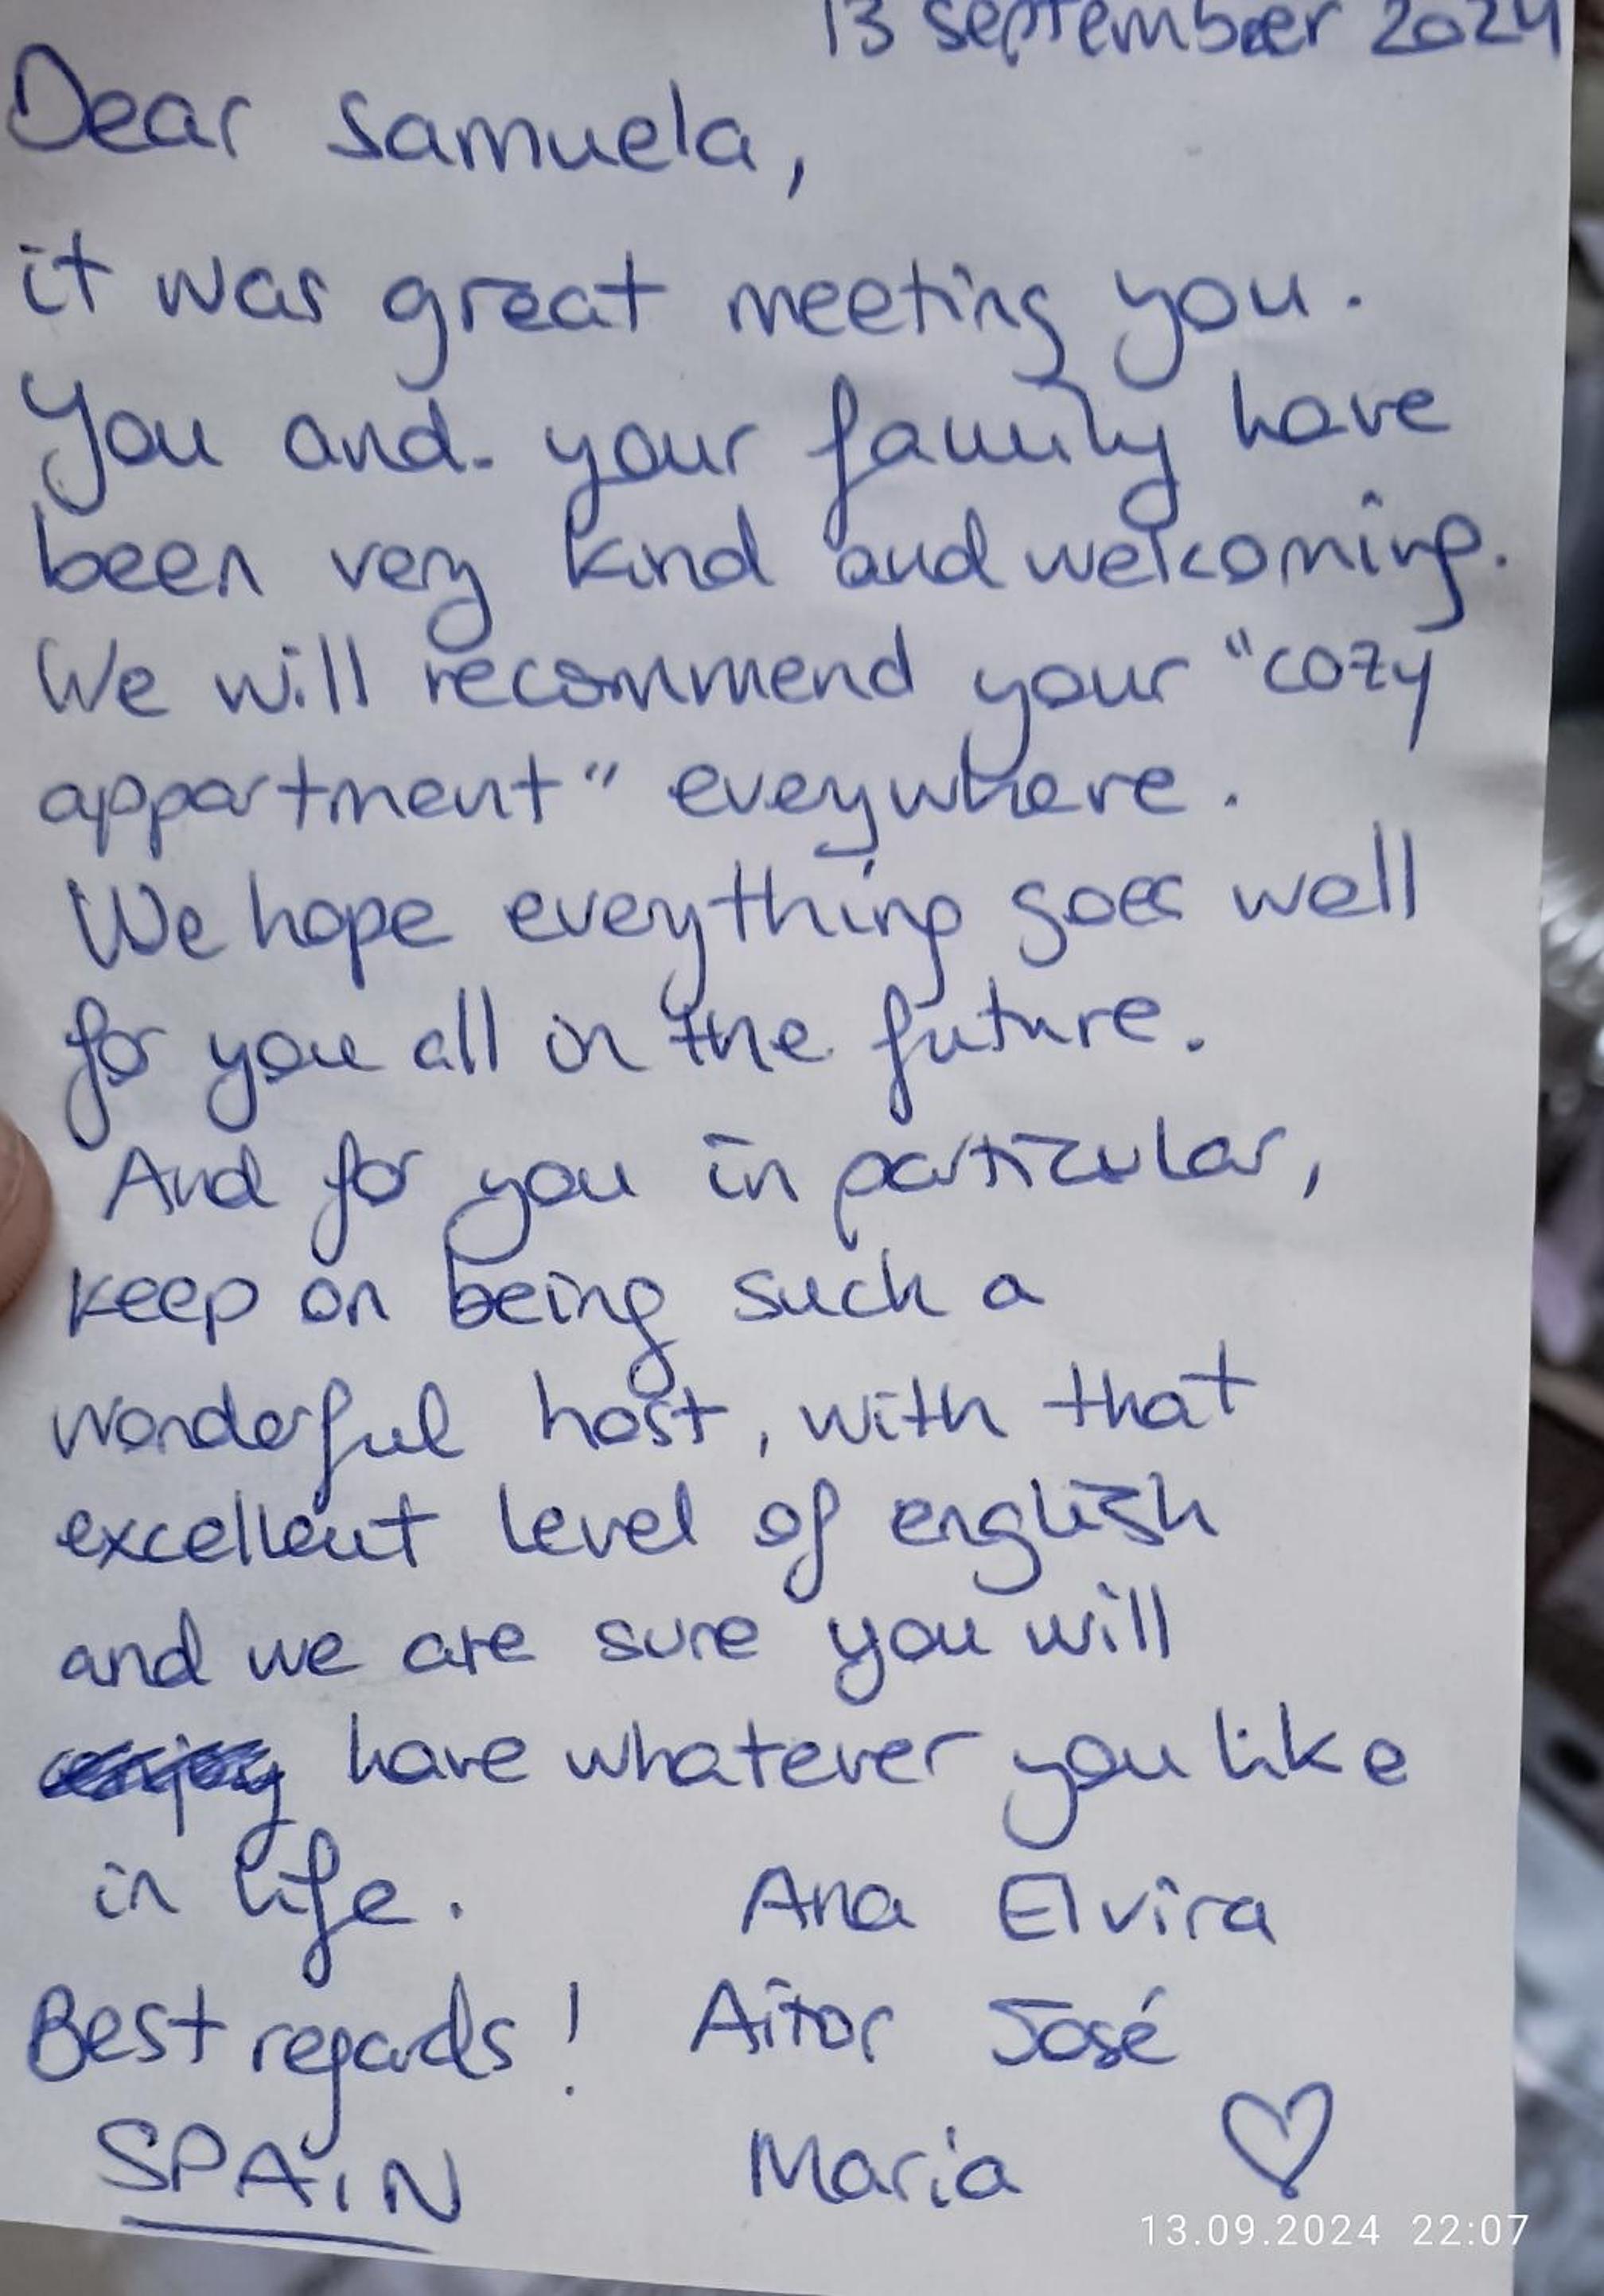 13 september 2024
Dear Samuela,
it was great meeting you.
You and your family have
been very kind and welcoming.
We will recommend your "cozy
appartment" everywhere.
We hope everything goes well
for you all in the future.
And for you in particular,
keep on being such a
wonderful host, with that
excellent level of english
and we are sure you will
have whatever you like
in life. Ana Elvira
Best regards! Aitor José
SPAIN Maria
13.09.2024 22:07